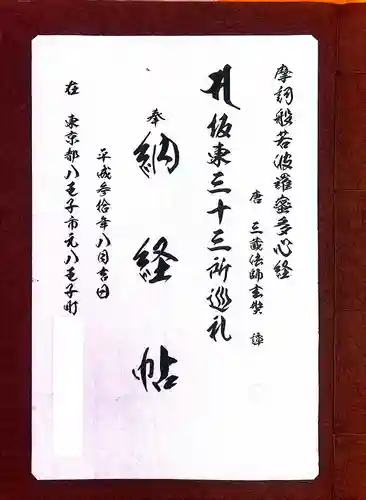 摩訶般若波羅蜜多心経
唐 三蔵法師玄奘 譯
坂東三十三所巡礼
奉
納経帖
平成参拾年八月吉日
在 東京都八王子市元八王子町